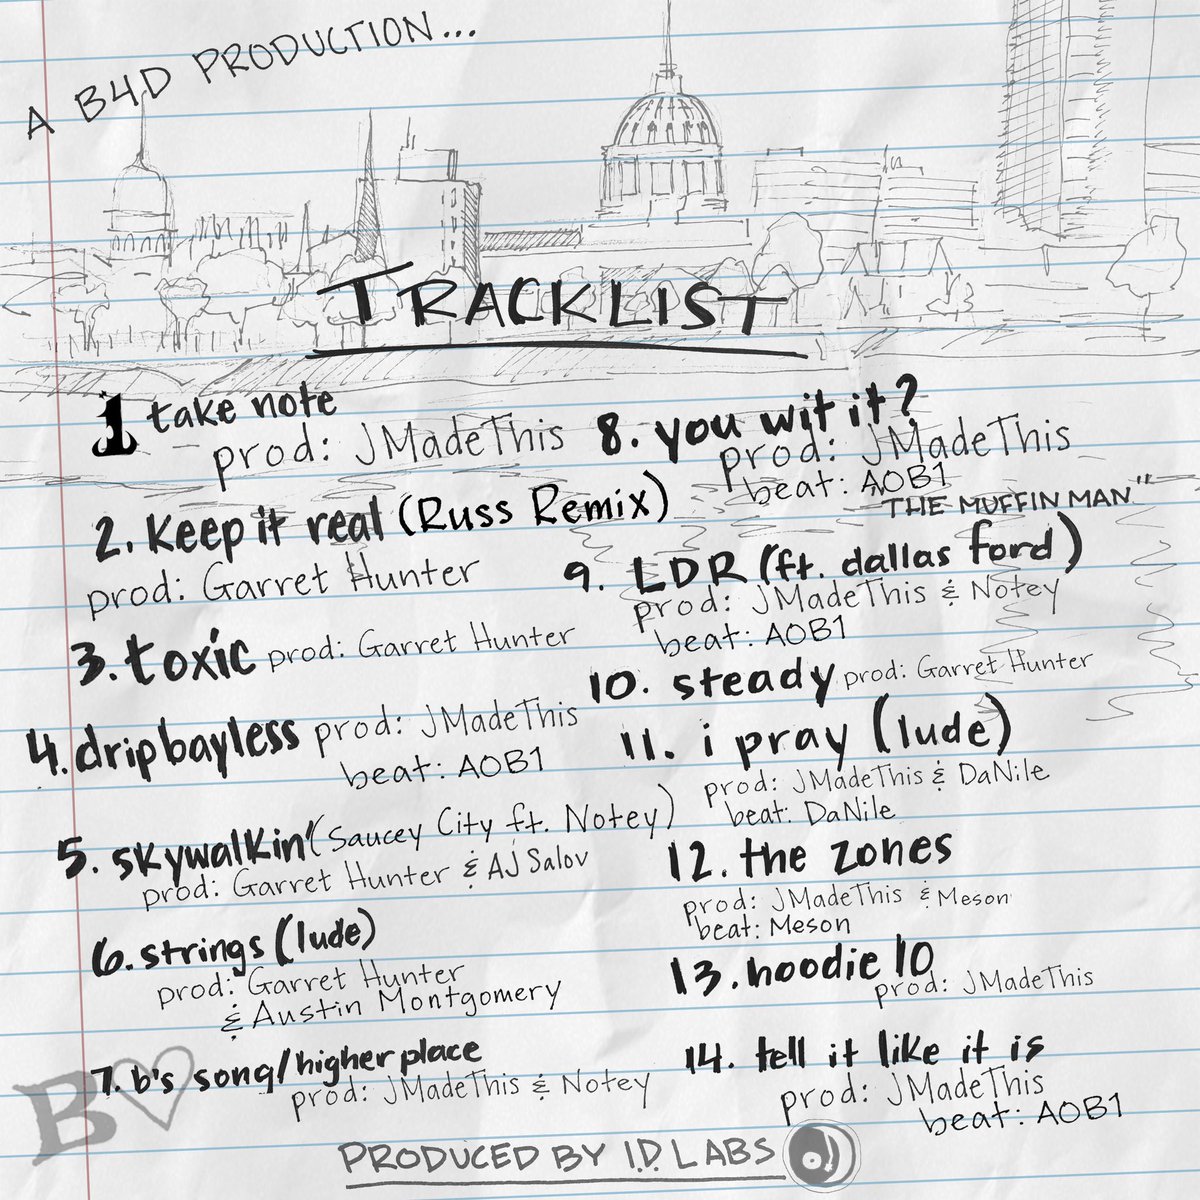 A B4D PRODUCTION...
TRACKLIST
1 take note
prod: JMadeThis
2. Keep it real (Russ Remix)
prod: Garret Hunter
3. toxic prod: Garret Hunter
4. drip bayless prod: JMadeThis
beat: AOB1
5. skywalkin' (Saucey City ft. Notey)
prod: Garret Hunter & AJ Salov
6. strings (lude)
prod: Garret Hunter
& Austin Montgomery
7. b's song/higher place
prod: JMadeThis & Notey
8. you wit it?
prod: JMadeThis
beat: AOB1
"THE MUFFIN MAN"
9. LDR (ft. dallas ford)
prod: JMadeThis & Notey
beat: AOB1
10. steady prod: Garret Hunter
11. i pray (lude)
prod: JMadeThis & DaNile
beat: DaNile
12. the zones
prod: JMadeThis & Meson
beat: Meson
13. hoodie 10
prod: JMadeThis
14. tell it like it is
prod: JMadeThis
beat: AOB1
B♡
PRODUCED BY I.D. LABS